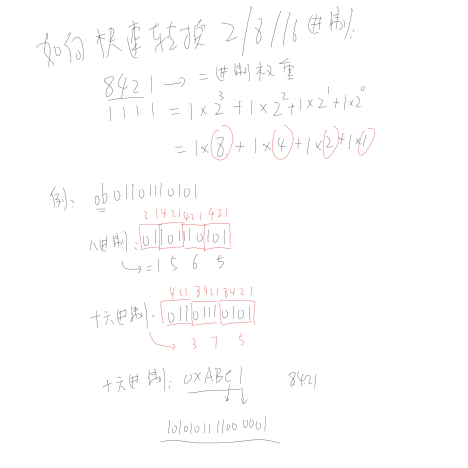 如何快速转换 2/8/16进制:
8421 → 二进制权重
1111 = 1×2³ + 1×2² + 1×2¹ + 1×2⁰
= 1×8 + 1×4 + 1×2 + 1×1
例: 0b01101110101
2 1 4 2 1 4 2 1 4 2 1
八进制: 01 101 110 101
→ = 1 5 6 5
4 2 1 8 4 2 1 8 4 2 1
十六进制: 011 0111 0101
→ 3 7 5
十六进制: 0xABC1 8421
1010101111000001